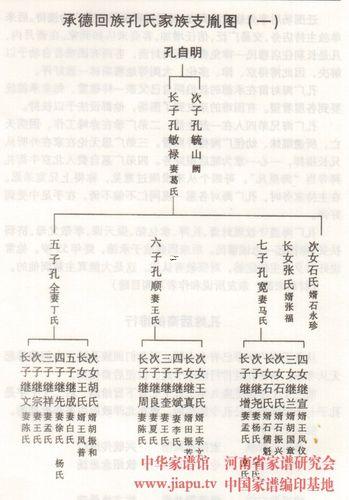 承德回族孔氏家族支胤图(一)
孔自明
长子孔敏禄 妻葛氏
次子孔毓山 阙
五子孔全 妻丁氏
六子孔顺 妻王氏
七子孔宽 妻马氏
长女张氏 婿张福
次女石氏 婿石永珍
长子继文 妻陈氏
次子继宗 妻戴氏
三子继祥 妻孟氏
四子继先 妻徐氏 杨氏
五女成氏 婿王凤普
次女胡氏 婿胡振和
长子继周 妻陈氏
次子继良 妻夏氏
三子继奎 妻王氏
四子继斌 妻李氏
长女继真 婿田振芳
次女王氏 婿王宗文
长子继增 妻孟氏
次子继尧 妻杨氏
长女石氏 婿石儒魁
次女继石 婿石振兴
三女继兰 婿胡国章
四女继宣 婿王凤仪
中华家谱馆 河南省家谱研究会
www.jiapu.tv 中国家谱编印基地